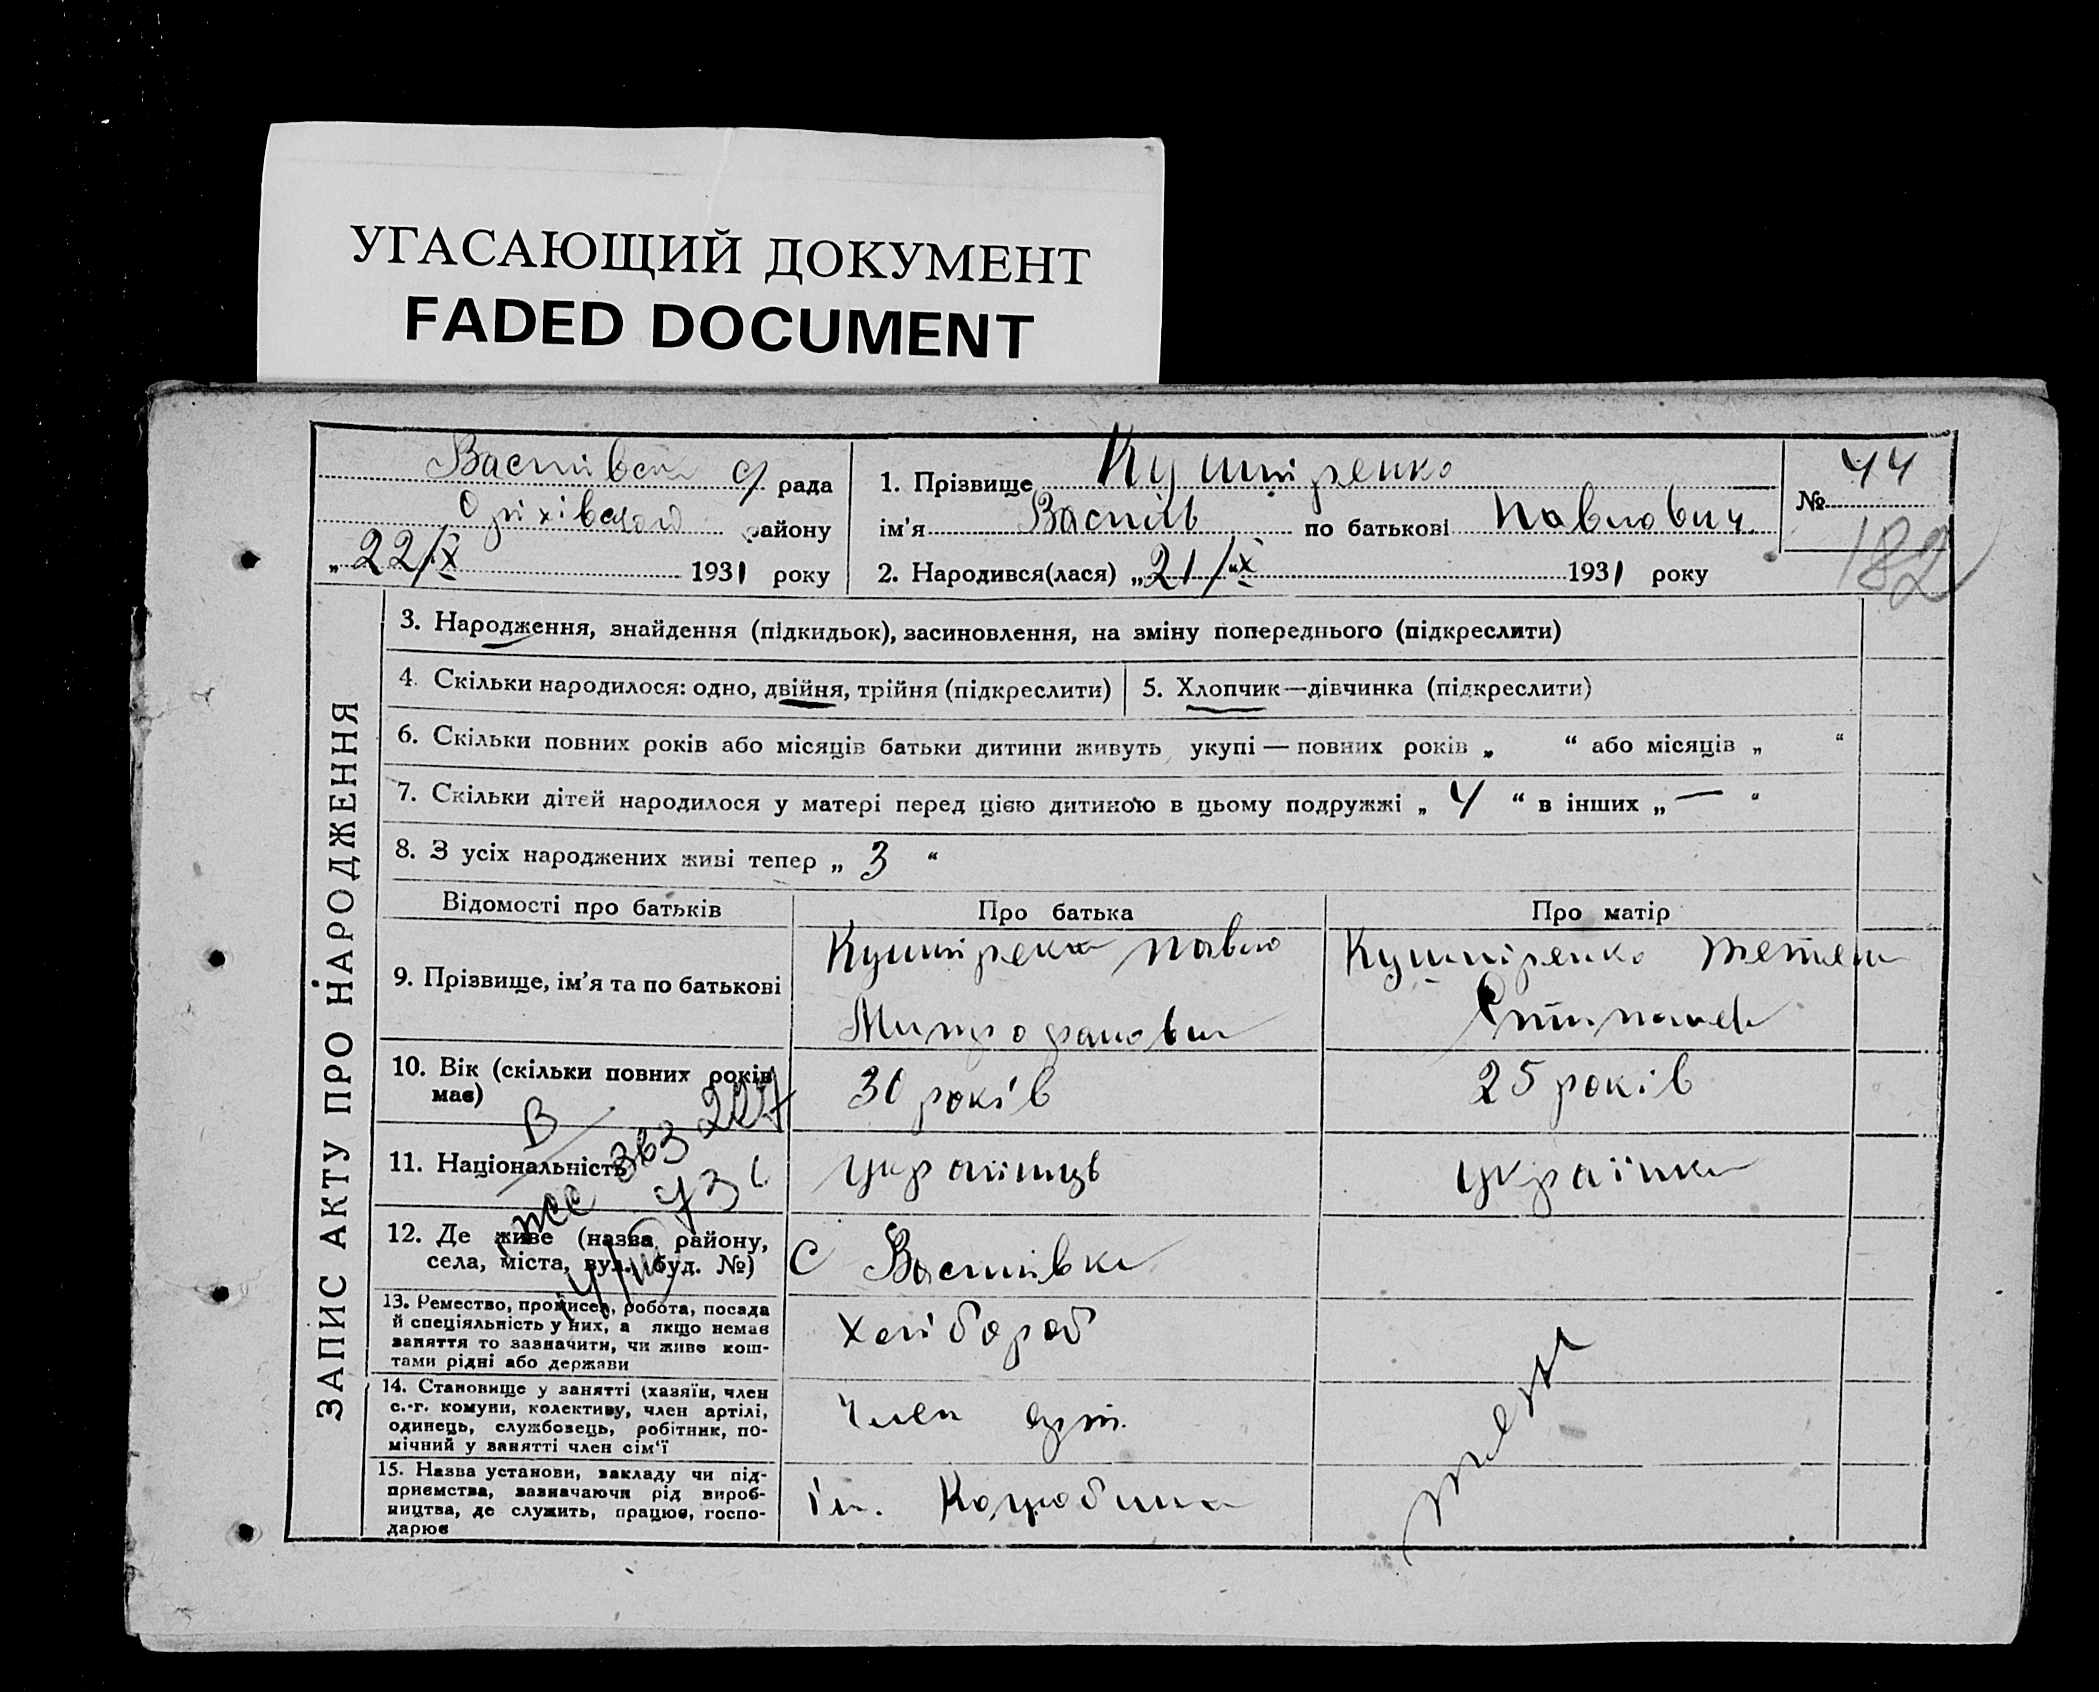 УГАСАЮЩИЙ ДОКУМЕНТ
FADED DOCUMENT
с/рада
Оріхівськой району
„ 22/X 1931 року
1. Прізвище Кушніренко
ім’я Василь по батькові Павлович
2. Народився(лася) „ 21/“ X 1931 року
№ 44
182
ЗАПИС АКТУ ПРО НАРОДЖЕННЯ
3. Народження, знайдення (підкидьок), засиновлення, на зміну попереднього (підкреслити)
4. Скільки народилося: одно, двійня, трійня (підкреслити)
5. Хлопчик—дівчинка (підкреслити)
6. Скільки повних років або місяців батьки дитини живуть укупі — повних років „ “ або місяців „ “
7. Скільки дітей народилося у матері перед цією дитиною в цьому подружжі „ 4 “ в інших „ — “
8. З усіх народжених живі тепер „ 3 “
Відомості про батьків
Про батька
Про матір
9. Прізвище, ім’я та по батькові
Кушніренко Павло
Митрофанович
Кушніренко Тетяна
10. Вік (скільки повних років
має)
30 років
25 років
11. Національність
українць
українка
12. Де живе (назва району,
села, міста, вул., буд. №)
С Василівка
13. Ремество, промисел, робота, посада
й спеціяльність у них, а якщо немає
заняття то зазначити, чи живе кош-
тами рідні або держави
Хлібороб
14. Становище у занятті (хазяїн, член
с.-г. комуни, колективу, член артілі,
одинець, службовець, робітник, по-
мічний у занятті член сім’ї
Член арт.
15. Назва установи, закладу чи під-
приємства, зазначаючи рід вироб-
ництва, де служить, працює, госпо-
дарює
ім. Коцюбина
член
В
363227